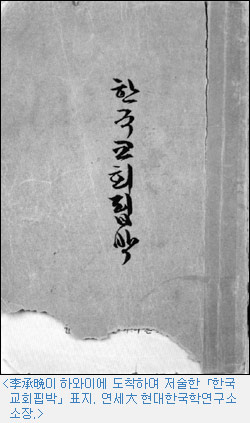 한국교회핍박
<李承晩이 하와이에 도착하여 저술한 「한국
교회핍박」 표지. 연세大 현대한국학연구소
소장.>